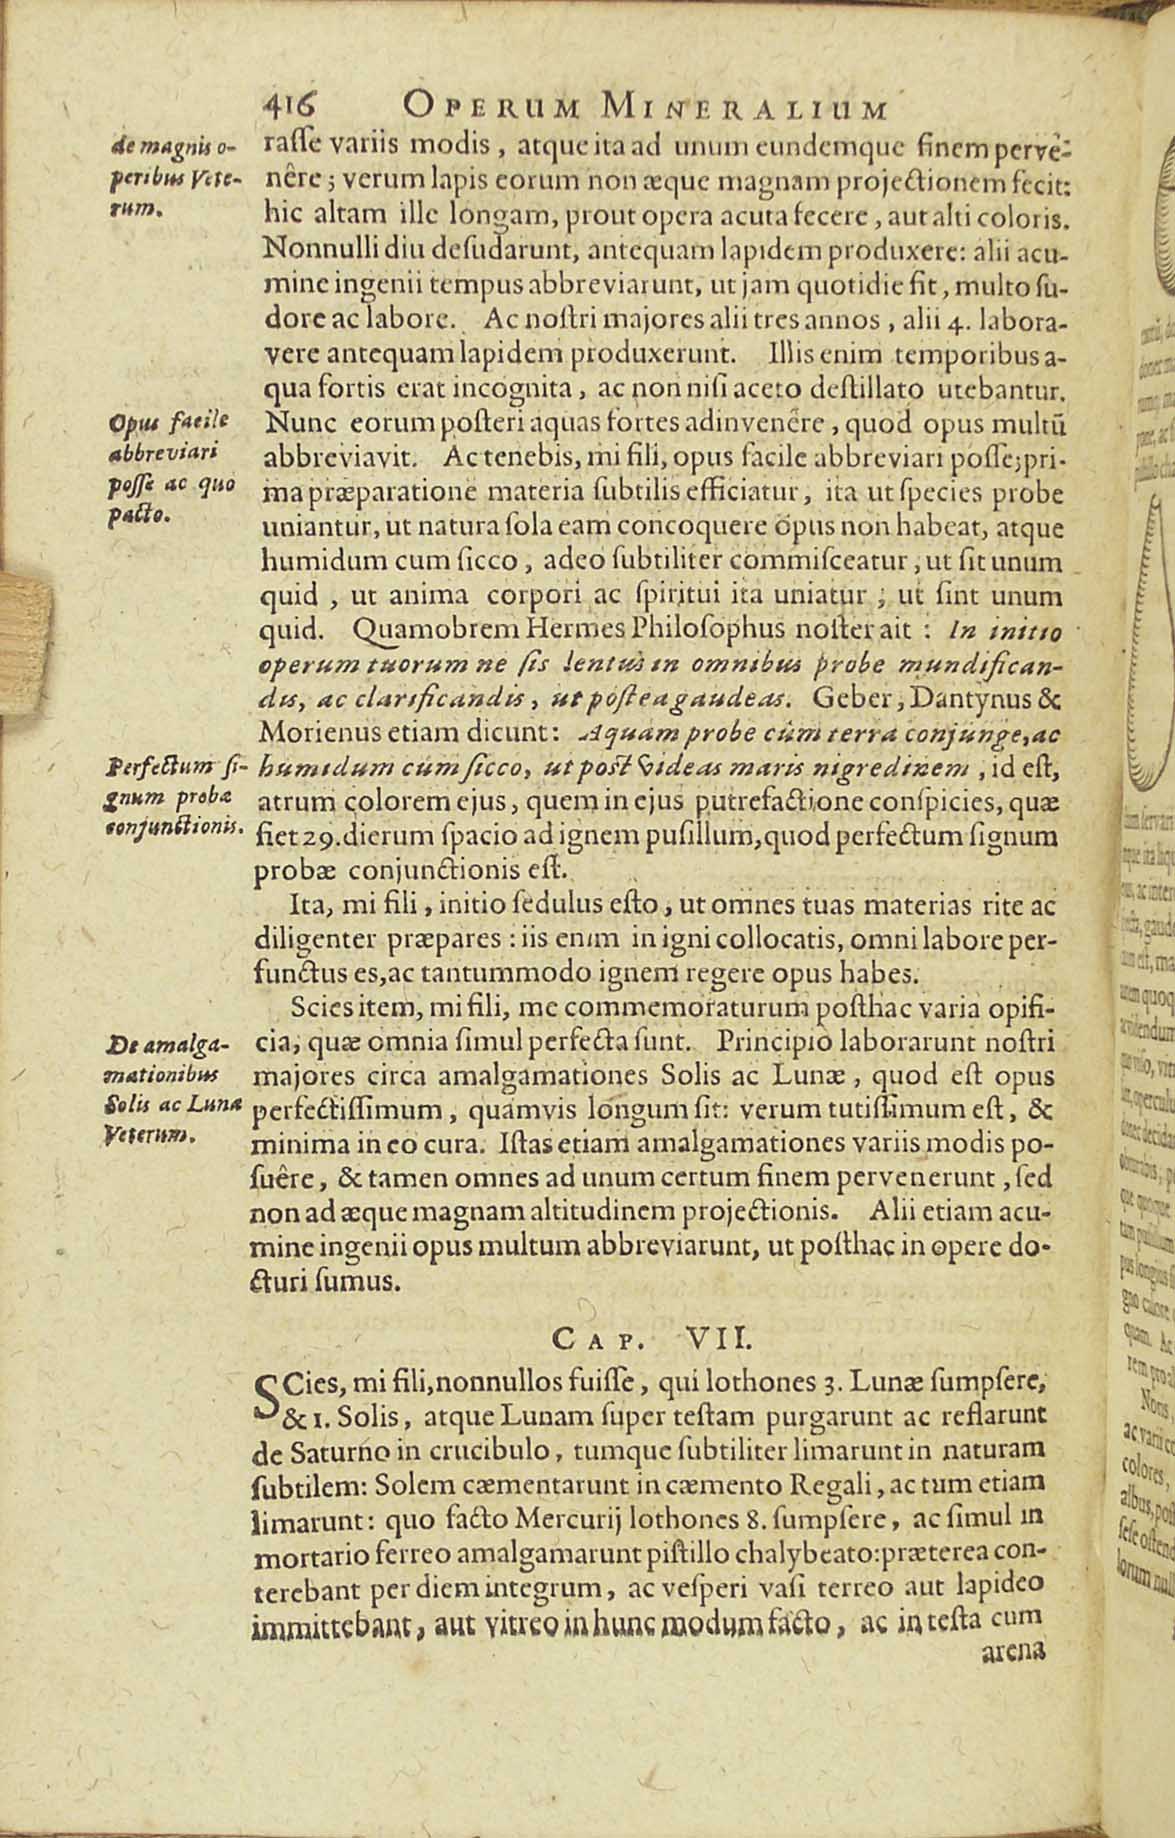 416 OPERUM MINERALIUM
de magnis o-
peribus Vete-
rum.
raſſe variis modis, atque ita ad unum eundemque finem pervê-
nêre; verum lapis eorum non æque magnam projectionem fecit:
hic altam ille longam, prout opera acuta fecere, aut alti coloris.
Nonnulli diu deſudarunt, antequam lapidem produxere: alii acu-
mine ingenii tempus abbreviarunt, ut jam quotidie fit, multo ſu-
dore ac labore. Ac noſtri majores alii tres annos, alii 4. labora-
vere antequam lapidem produxerunt. Illis enim temporibus a-
qua fortis erat incognita, ac non niſi aceto deſtillato utebantur.
Opus facile
abbreviari
poſſe ac quo
pacto.
Nunc eorum poſteri aquas fortes adinvenêre, quod opus multũ
abbreviavit. Ac tenebis, mi fili, opus facile abbreviari poſſe; pri-
ma præparatione materia ſubtilis efficiatur, ita ut ſpecies probe
uniantur, ut natura ſola eam concoquere opus non habeat, atque
humidum cum ſicco, adeo ſubtiliter commiſceatur, ut ſit unum
quid, ut anima corpori ac ſpiritui ita uniatur; ut ſint unum
quid. Quamobrem Hermes Philoſophus noſter ait: In initio
operum tuorum ne ſis lentus in omnibus probe mundifican-
dis, ac clarificandis, ut poſtea gaudeas. Geber, Dantynus &
Morienus etiam dicunt: Aquam probe cum terra conjunge, ac
Perfectum ſi-
gnum probæ
conjunctionis.
humidum cum ſicco, ut poſt videas maris nigredinem, id eſt,
atrum colorem ejus, quem in ejus putrefactione conſpicies, quæ
fiet 29. dierum ſpacio ad ignem puſillum, quod perfectum ſignum
probæ conjunctionis eſt.
Ita, mi fili, initio ſedulus eſto, ut omnes tuas materias rite ac
diligenter præpares: iis enim in igni collocatis, omni labore per-
functus es, ac tantummodo ignem regere opus habes.
Scies item, mi fili, me commemoraturum poſthac varia opifi-
De amalga-
mationibus
Solis ac Lunæ
Veterum.
cia, quæ omnia ſimul perfecta ſunt. Principio laborarunt noſtri
majores circa amalgamationes Solis ac Lunæ, quod eſt opus
perfectiſſimum, quamvis longum ſit: verum tutiſſimum eſt, &
minima in eo cura. Iſtas etiam amalgamationes variis modis po-
ſuêre, & tamen omnes ad unum certum finem pervenerunt, ſed
non ad æque magnam altitudinem projectionis. Alii etiam acu-
mine ingenii opus multum abbreviarunt, ut poſthac in opere do-
cturi ſumus.
CAP. VII.
SCies, mi fili, nonnullos fuiſſe, qui lothones 3. Lunæ ſumpſere,
& 1. Solis, atque Lunam ſuper teſtam purgarunt ac reflarunt
de Saturno in crucibulo, tumque ſubtiliter limarunt in naturam
ſubtilem: Solem cæmentarunt in cæmento Regali, ac tum etiam
limarunt: quo facto Mercurij lothones 8. ſumpſere, ac ſimul in
mortario ferreo amalgamarunt piſtillo chalybeato: præterea con-
terebant per diem integrum, ac veſperi vaſi terreo aut lapideo
immittebant, aut vitreo in hunc modum facto, ac in teſta cum
arena